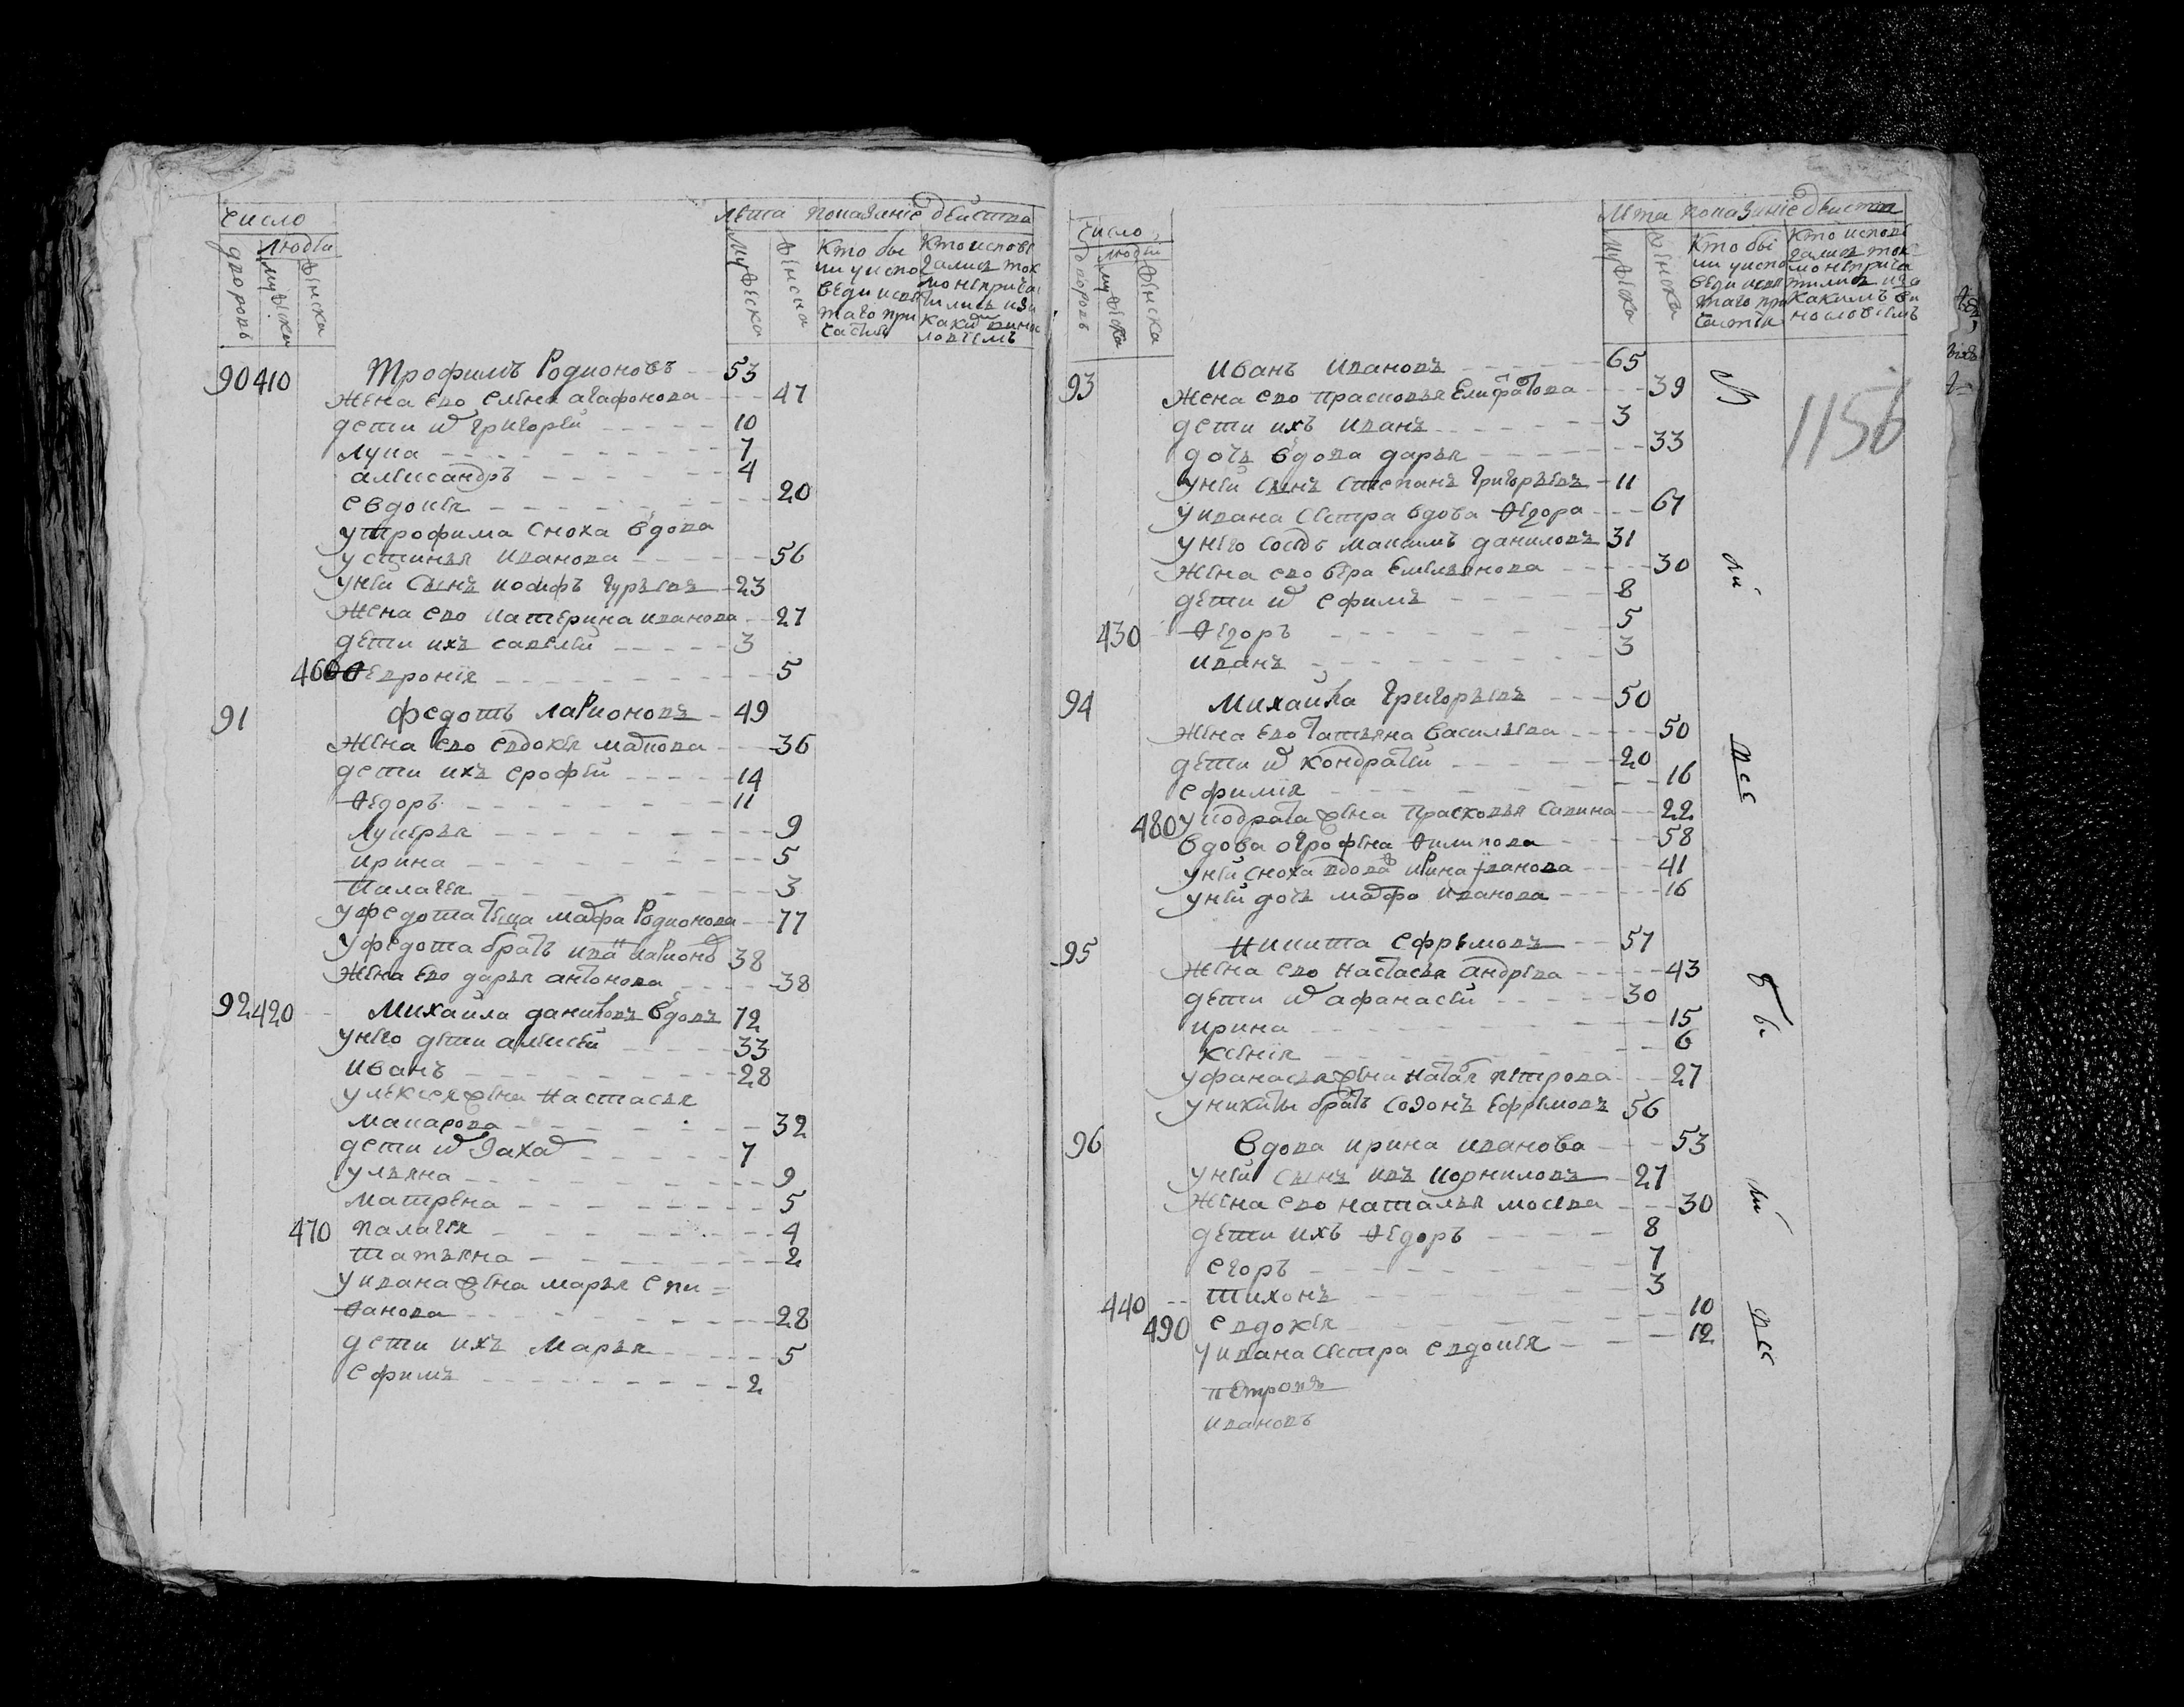 число
людей
дворовъ
мужеска
женска
лета
показание действа
мужеска
женска
Кто бы
ли уиспо
веди исвя
таго при
частия
Кто испове
дались ток
мо неприча
тились изо
каких вино
90 410 Трофимъ Родионовъ 53
жена ево елена агафонова 47
дети их григорей 10
лука 7
александръ 4
евдокея 20
утрофима сноха вдова
устинья иванова 56
уней сынъ иосифъ гурьевъ 23
жена ево катерина иванова 27
дети ихъ савелей 3
460 Ѳеврония 5
91 Федотъ ларионовъ 49
жена ево евдокея маркова 36
дети ихъ ерофей 14
Ѳедоръ 11
лукерья 9
ирина 5
пилагея 3
уфедота теща марфа Родионова 77
уфедота братъ иван ларионов 38
жена ево дарья антонова 38
92 420 Михаила даниловъ вдовъ 72
унего дети алексей 33
иванъ 28
улексея жена настасья
макарова 32
дети их Захар 7
ульяна 9
матрена 5
470 палагея 4
татьяна 2
уивана жена марья епи=
Ѳанова 28
дети ихъ марья 5
ефимъ 2
число
людей
дворовъ
мужеска
женска
лета показание действа
мужеска
женска
Кто бы
ли уиспо
веди исвя
таго при
частия
Кто испове
дались ток
мо неприча
тились изо
какимъ ви
нословиемъ
1156
93 иванъ ивановъ 65
жена ево прасковья Елифатова 39
дети ихъ иванъ 3
дочь вдова дарья 33
уней сынъ степанъ григорьевъ 11
уивана сестра вдова Ѳедора 67
унего соседъ максимъ даниловъ 31
жена ево вера емельянова 30
дети их ефимъ 8
430 Ѳедоръ 5
иванъ 3
94 Михайла григорьевъ 50
жена ево татьяна васильева 50
дети их кондратей 20
ефимия 16
480 укодрата жена прасковья савина 22
вдова огрофена Ѳилипова 58
уней сноха вдова ирина иванова 41
уней дочь марфа иванова 16
95 никита ефремовъ 57
жена ево настасья андреева 43
дети их афанасей 30
ирина 15
ксения 6
уфанасья жена наталя петрова 27
уникиты братъ созонъ ефремовъ 56
96 вдова ирина иванова 53
уней сынъ ивъ корниловъ 27
жена ево наталья мосеева 30
дети ихъ Ѳедоръ 8
егоръ 7
440 тихонъ 3
490 евдокея 10
уивана сестра евдокея 12
петровъ
ивановъ